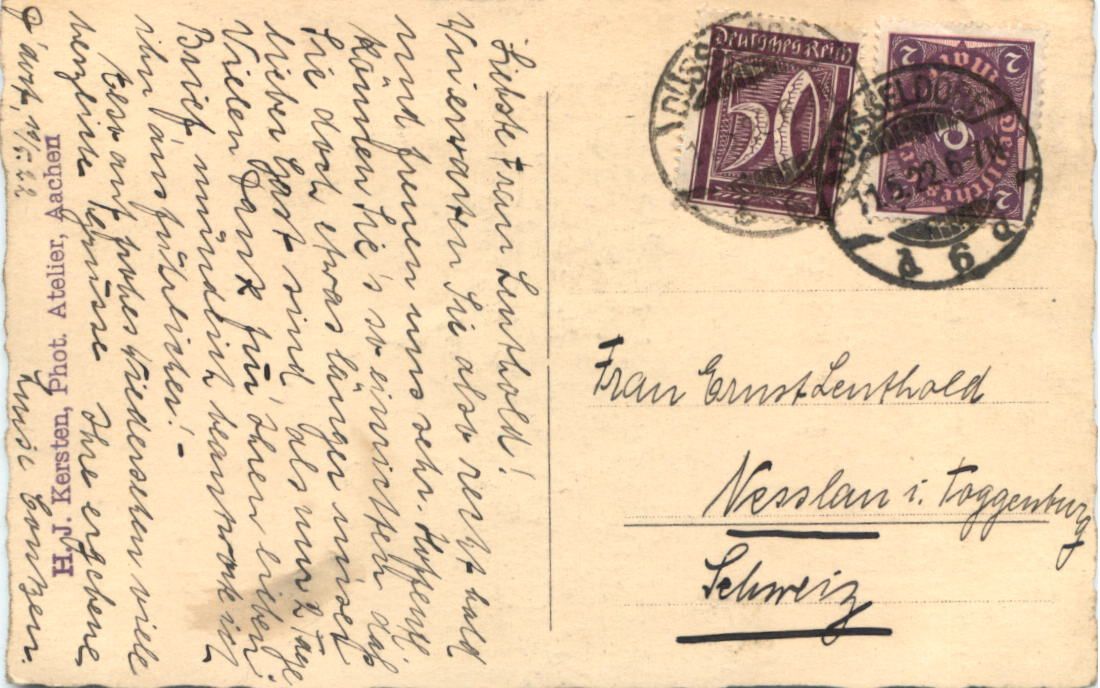 Liebste Frau Leuthold!
Wir erwarten Sie also recht bald
und freuen uns sehr. Hoffentl.
können Sie's so einrichten daß
Sie doch etwas länger unser
lieber Gast sind als nur 2 Tage
Vielen Dank für Ihren lieben
Brief, mündlich beantworte ich
ihn ausführlicher! -
Also auf frohes Wiedersehen viele
herzliche Grüsse Ihre ergebene
Luise
5.22
H. J. Kersten, Phot. Atelier, Aachen
Deutsches Reich
50
2
2
Deutsches Reich
DÜSSELDORF
11.5.22.6-7N
d 6 d
Frau Ernst Leuthold
Nesslau i. Toggenburg
Schweiz